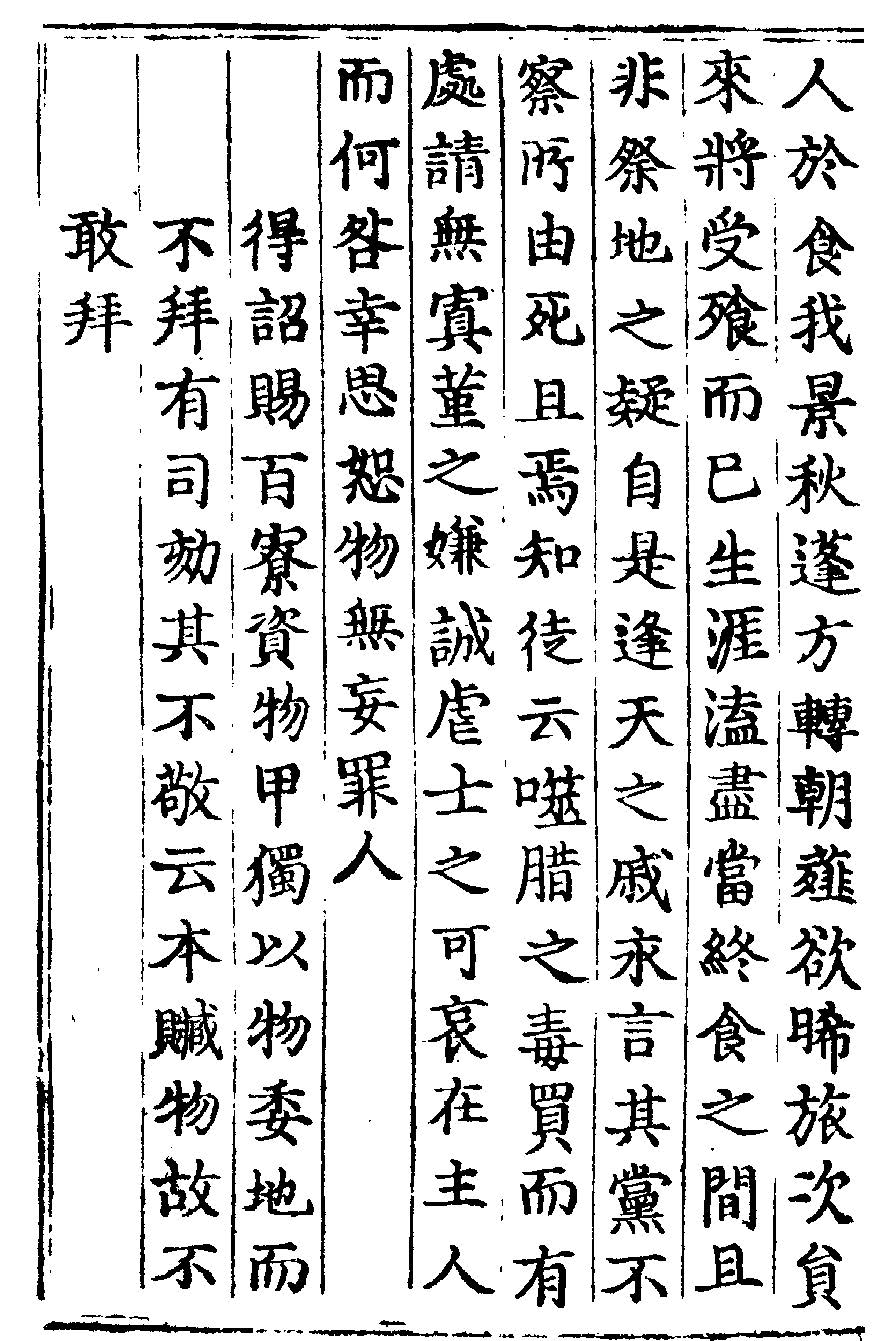 人於食我景秋蓬方轉朝薤欲晞旅次貟
來將受飱而已生涯溘盡當終食之間且
非祭地之疑自是逢天之戚永言其黨不
察所由死且焉知徒云噬腊之毒買而有
處請無寘堇之嫌誠虐士之可哀在主人
而何咎幸思恕物無妄罪人
得詔賜百寮資物甲獨以物委地而
不拜有司劾其不敬云本贓物故不
敢拜